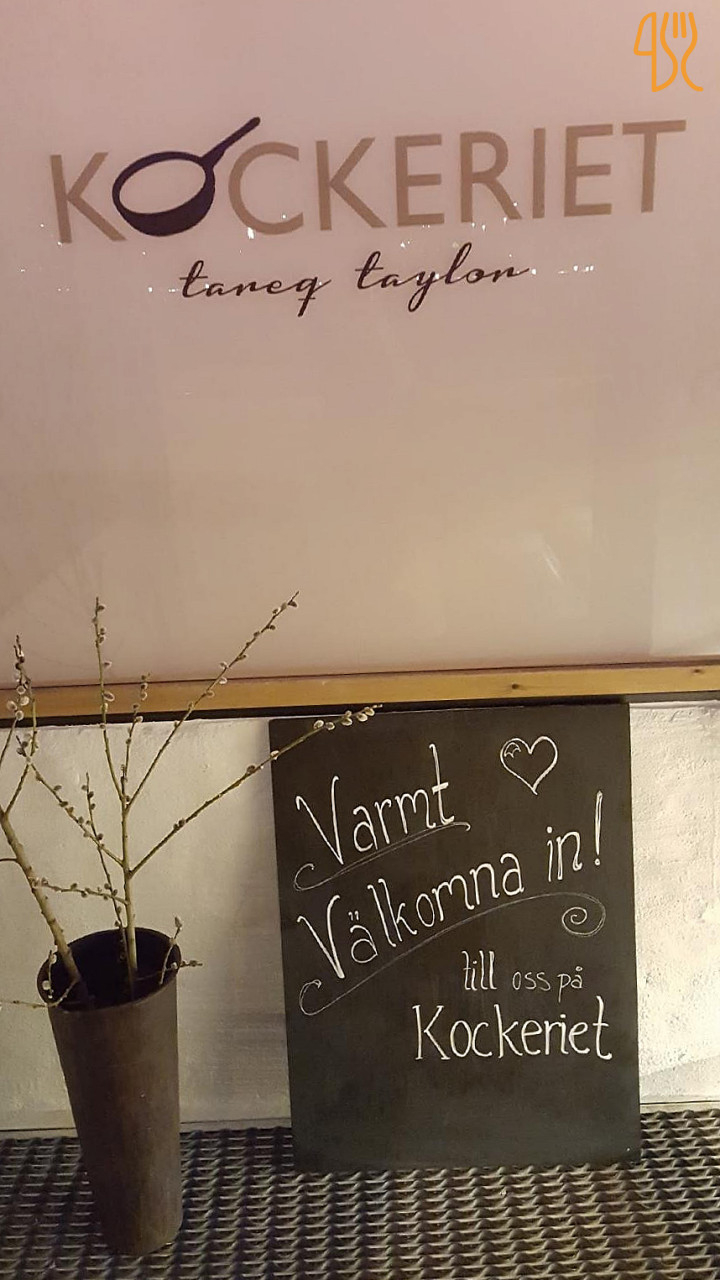 KOCKERIET
tareq taylor
Varmt
Välkomna in!
till oss på
Kockeriet